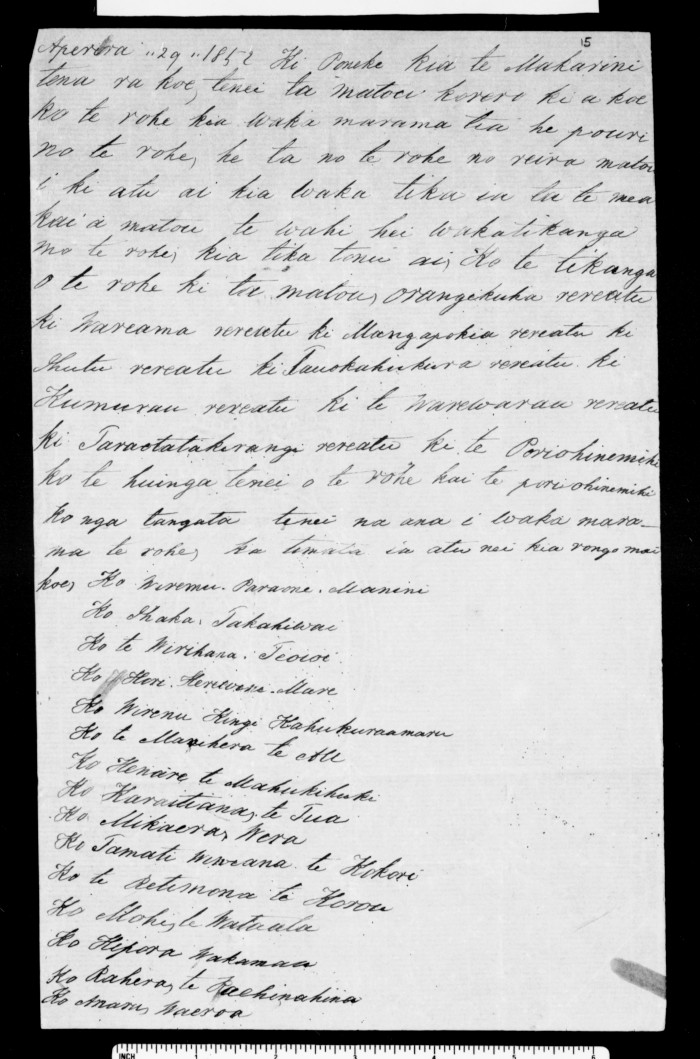 15
Aperira "29" 1852 Ki Poneke kia te Makarini
tena ra koe, tenei ta matou korero ki a koe
ko te rohe kia waka marama tia he pouri
no te rohe, he ta no te rohe no reira matou
i ki atu ai kia waka tika ia ta te mea
kai a matou te wahi hei wakatikanga
mo te rohe, kia tika tonu ai, Ko te tikanga
o te rohe ki ta matou, Orangikuha rereatu
ki Wareama rereatu ki Mangapokia rereatu ki
Ihutu rereatu ki Tauokahukura rereatu ki
Kumurau rereatu ki te Warewarau rereatu
ki Taraotatakirangi rereatu ki te Poriohinemihi
ko te huinga tenei o te rohe kai te poriohinemihi
ko nga tangata tenei na ana i waka mara-
ma te rohe, ka timata ia atu nei kia rongo mai
koe, Ko Wiremu. Paraone. Manini
Ko Ihaka. Takahiwai
Ko te Wirihana. Teowi
Ko Hori. Mare
Ko Wirenu Kingi Kahukuraamaru
Ko te Manihera te
Ko Henare te Mahukihuki
Ko Karaitiana, te Tua
Ko Mikaera, Wera
Ko Tamati te Kokori
Ko te Retimona te Korou
Ko Mohi, te Wataata
Ko Hipora Wakamaa
Ko Rahera, te Kaehinahina
Ko Amaru, Waeroa
INCH 1 2 3 4 5 6